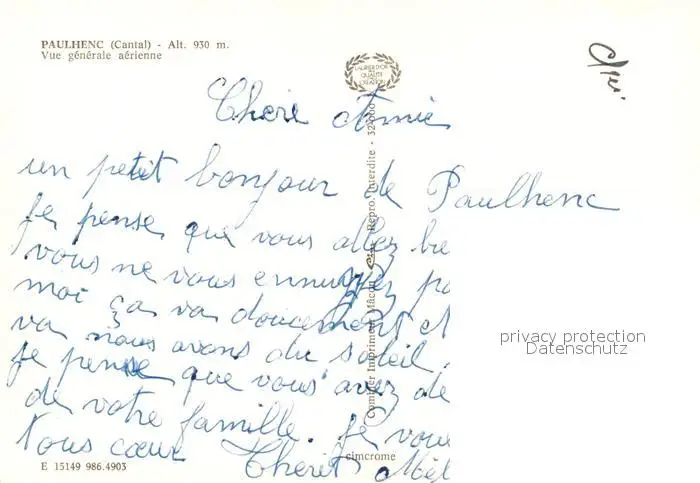 PAULHENC (Cantal) - Alt. 930 m.
Vue générale aérienne
LAURIER D'OR
DE LA
QUALITÉ
CRÉATION
Chere Amie
un petit bonjour de Paulhenc
Je pense que vous allez bie
vous ne vous ennuyez pa
moi ça va doucement et
va nous avons du soleil.
je pense que vous avez de
de votre famille. Je vous
tous cœur Theret Mel
E 15149 986.4903
cimcrome
Combier Imprimeur Mâcon
Repro. Interdite - 32000
privacy protection
Datenschutz